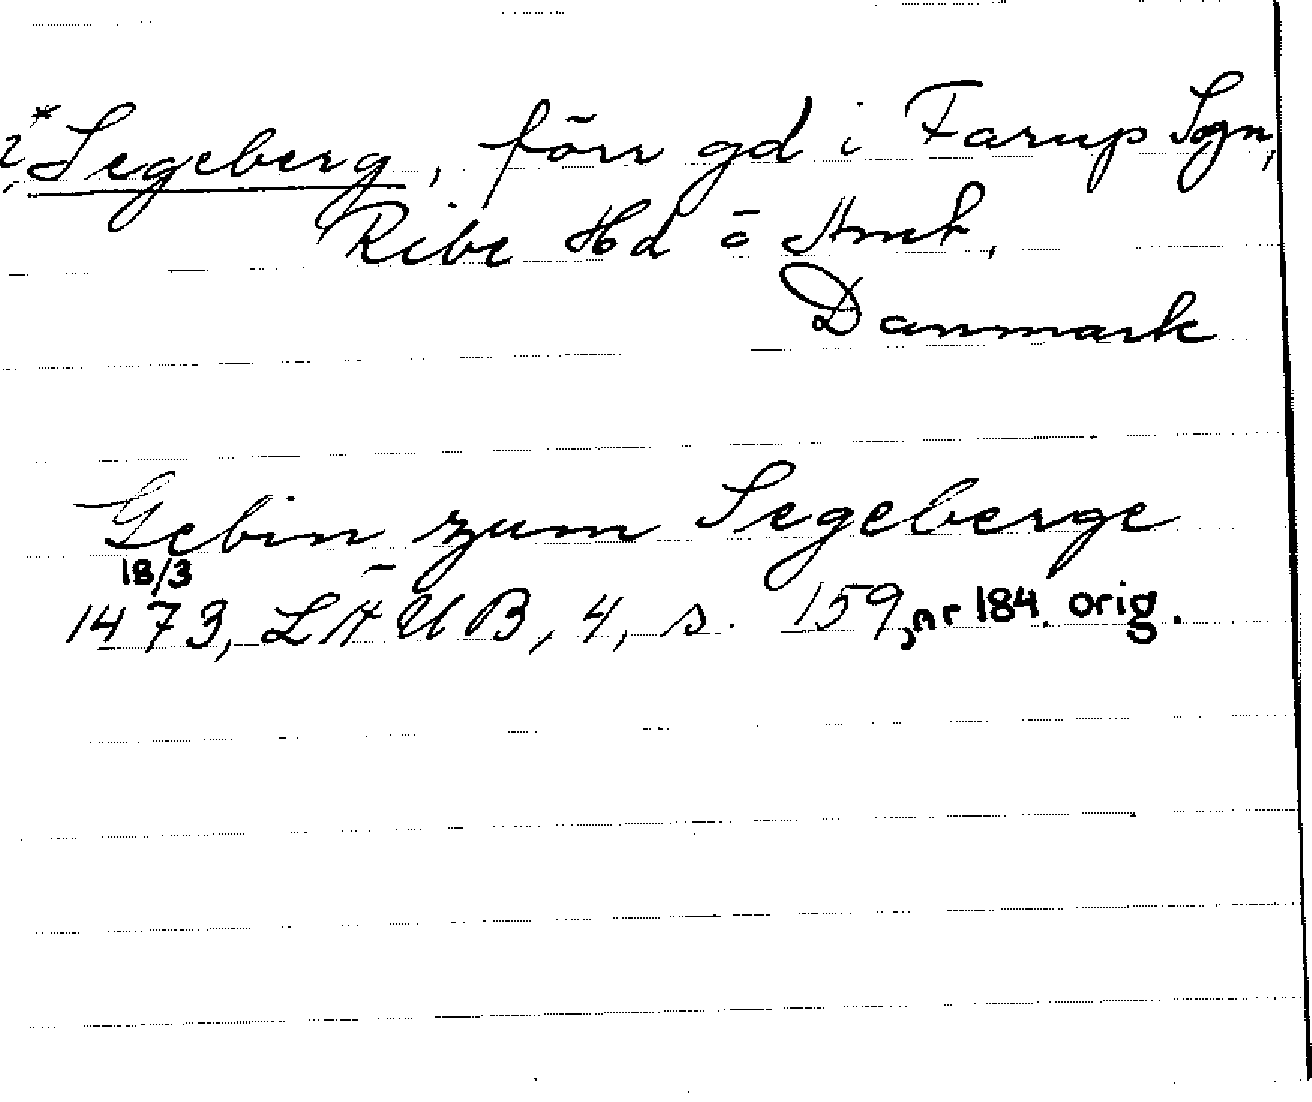 ?, *Segeberg, förr gd i Farup Sogn,
Ribe Hd o Amt,
Danmark
Gebin zum Segeberge
18/3
1473, LÄUB, 4, s. 159, nr 184. orig.